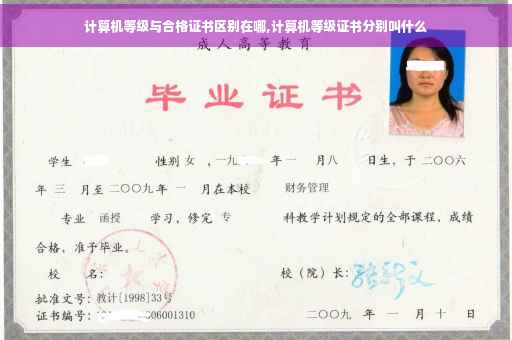 计算机等级与合格证书区别在哪,计算机等级证书分别叫什么
成人高等教育
毕业证书
学生 性别 女 ，一九 年一 月八 日生，于二〇〇六
年 三 月至二〇〇九年 一 月在本校 财务管理
专业 函授 学习，修完 专 科教学计划规定的全部课程，成绩
合格，准予毕业。
校 名： 校（院）长：
批准文号：教计[1998]33号
证书编号： 06001310 二〇〇九 年 一 月 十 日